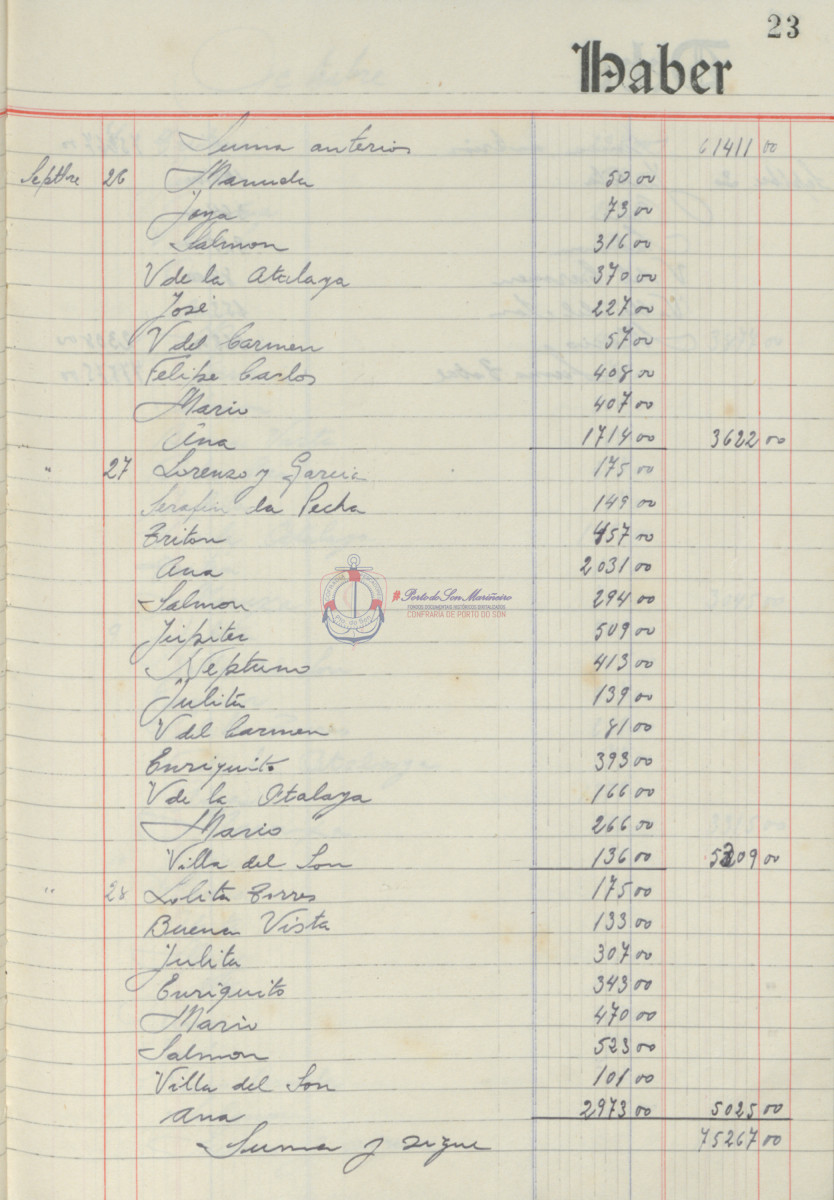 23
Haber
Suma anterior 61411 00
Septbre 26 Manuela 50 00
Joya 73 00
Salmon 316 00
V de la Atalaya 370 00
José 227 00
V del Carmen 57 00
Felipe Carlos 408 00
Mario 407 00
Ana 1714 00 3622 00
" 27 Lorenzo y Garcia 175 00
Serafin la Pecha 149 00
Triton 457 00
Ana 2031 00
Salmon 294 00
Jupiter 509 00
Neptuno 413 00
Julita 139 00
V del Carmen 81 00
Enriquito 393 00
V de la Atalaya 166 00
Mario 266 00
Villa del Son 136 00 5209 00
" 28 Lolita Torres 175 00
Buena Vista 133 00
Julita 307 00
Enriquito 343 00
Mario 470 00
Salmon 523 00
Villa del Son 101 00
Ana 2973 00 5025 00
Suma y sigue 75267 00
#Porto do Son Mariñeiro
FONDOS DOCUMENTAIS HISTÓRICOS DIXITALIZADOS
CONFRARÍA DE PORTO DO SON